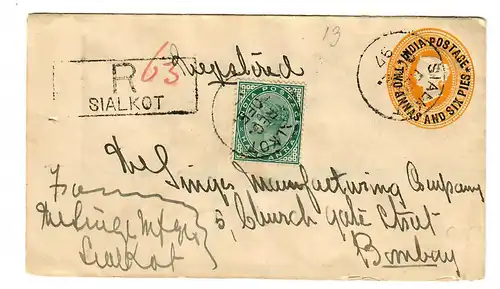 13
Registered
R 63
SIALKOT
INDIA POSTAGE
TWO ANNAS AND SIX PIES
SIALKOT
97
INDIA POSTAGE
HALF ANNA
SIALKOT
The Singer Manufacturing Company
5, Church gate Street
Bombay
From
The Singer Mfg Co
Sialkot